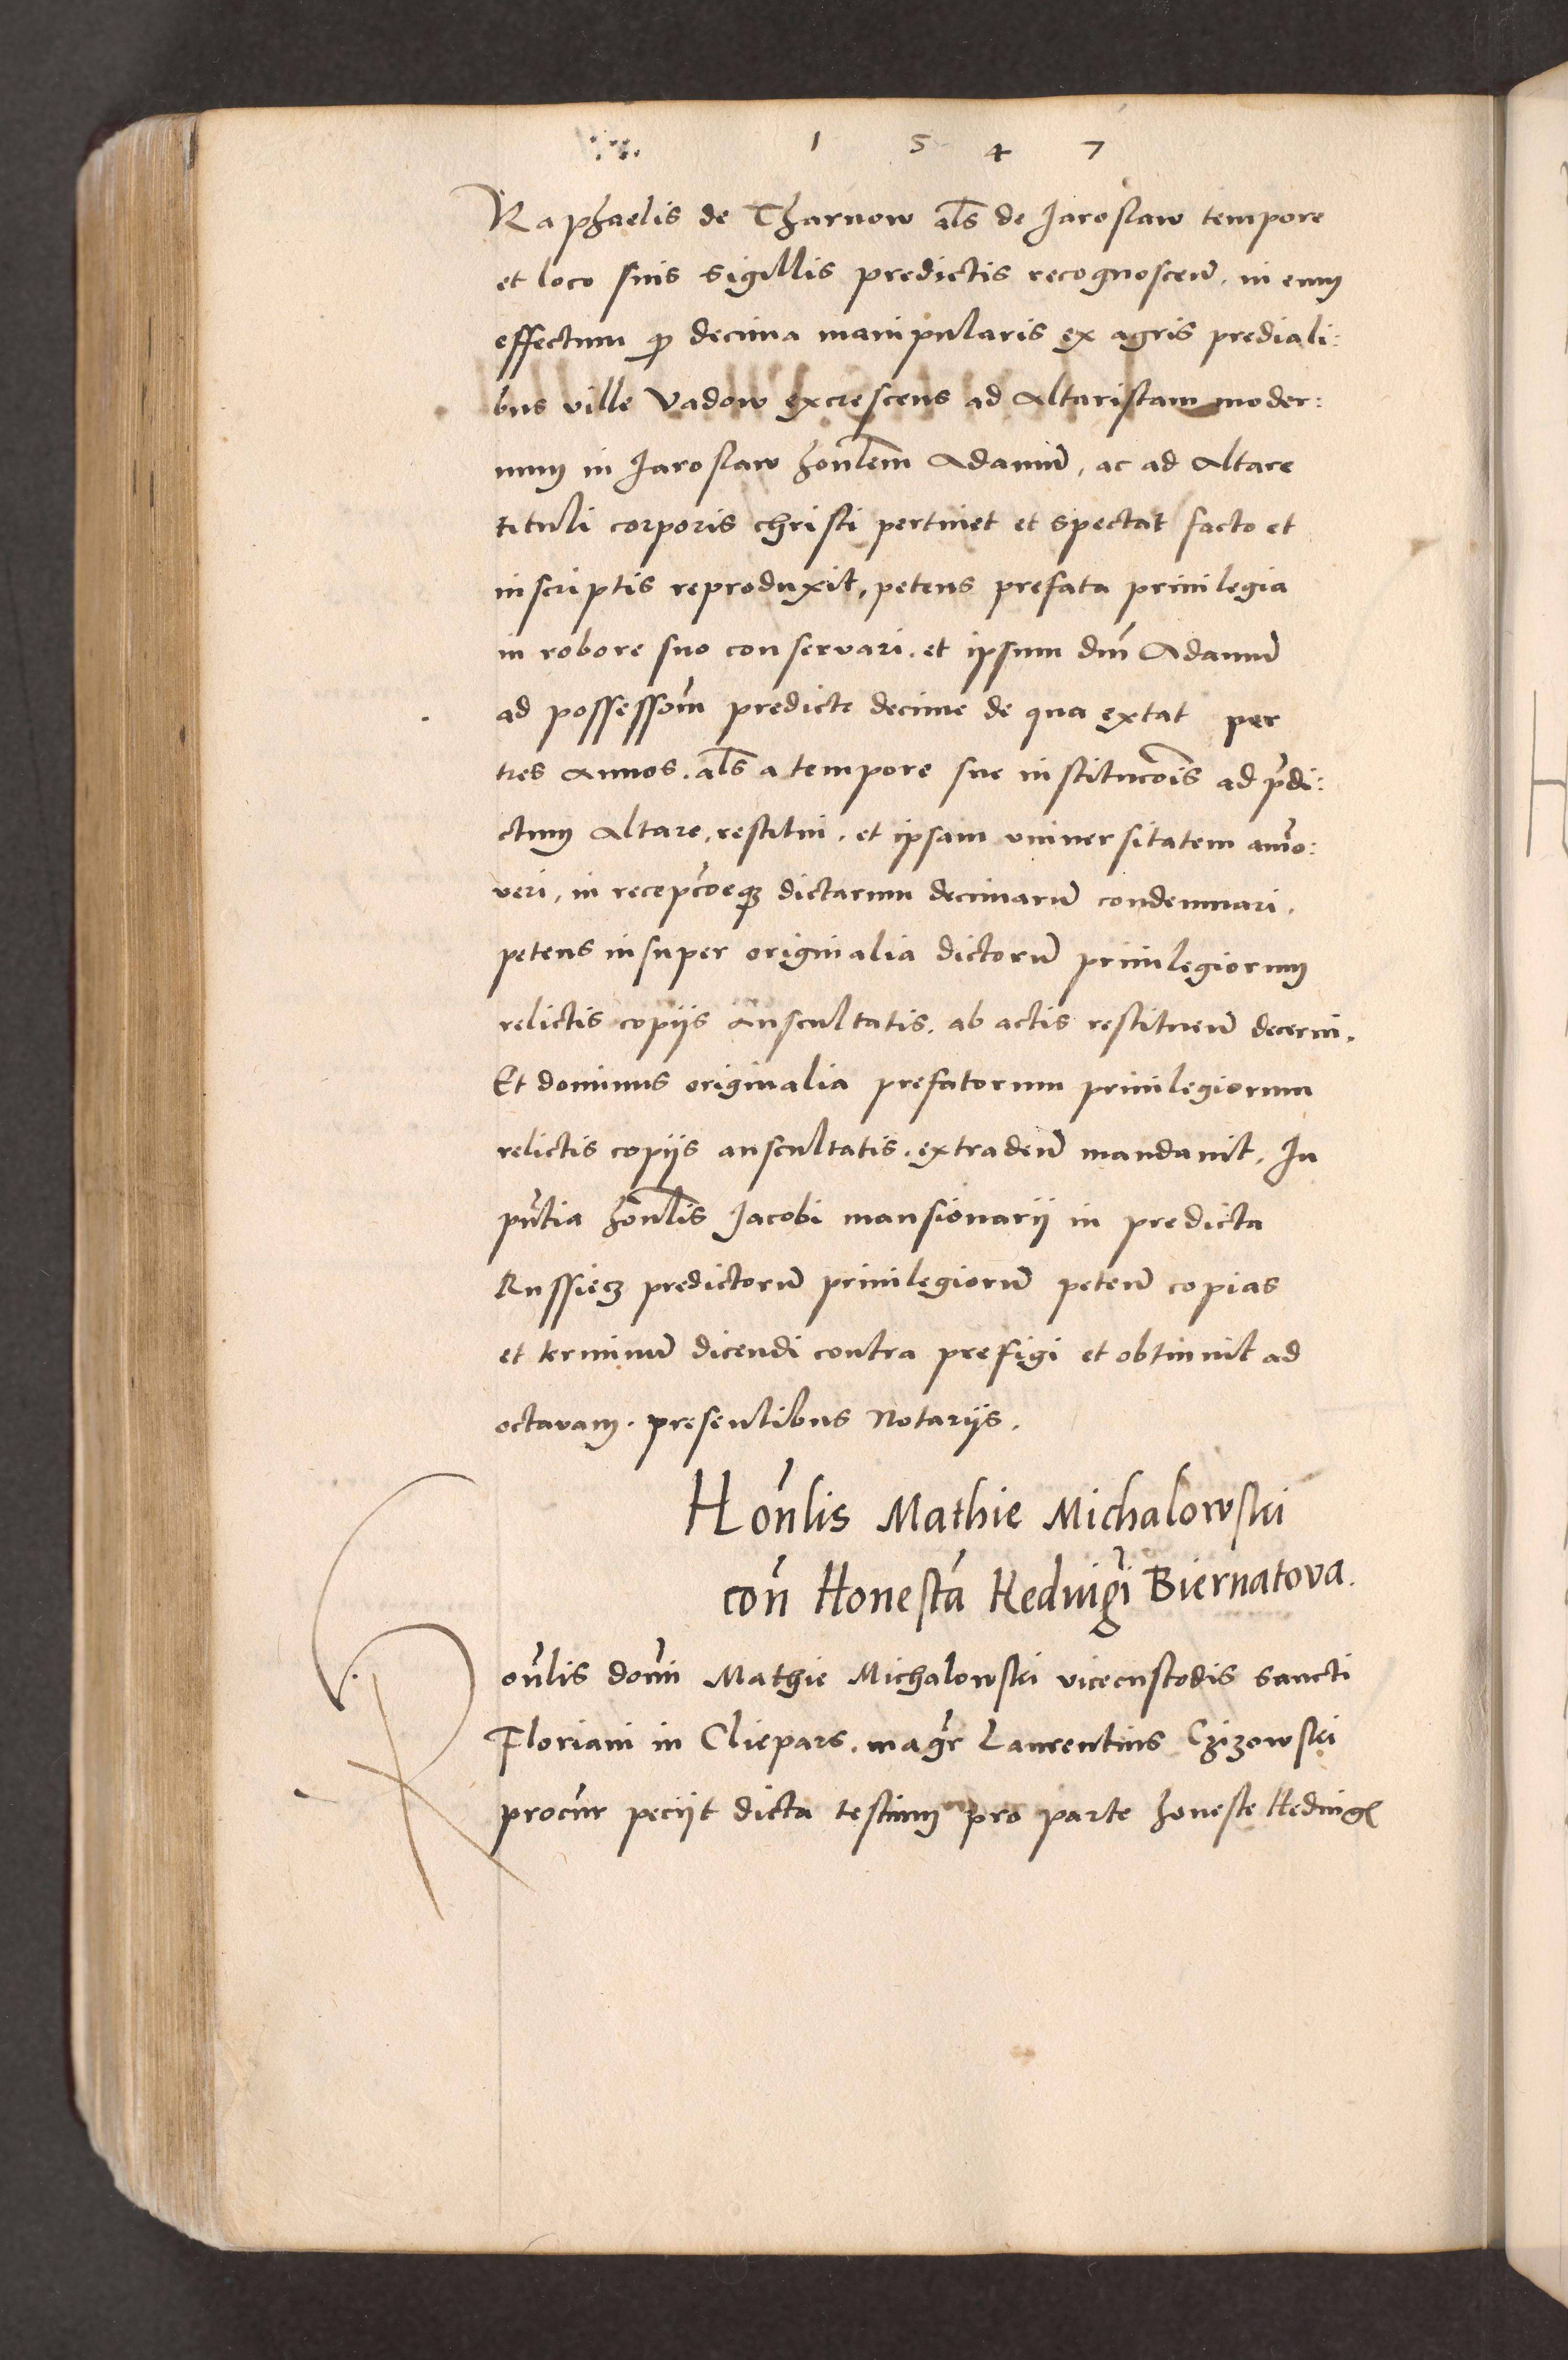 1 5 4 7
Raphaelis de Tharnow als de Jaroslaw tempore
et loco suis sigillis predictis recognoscen̄. in eum
effectum q̄ decima manipularis ex agris prediali:
bus ville Vadow excrescens ad Altaristam moder:
num in Jaroslaw hon̄lem Adamū, ac ad Altare
tituli corporis christi pertinet et spectat facto et
inscriptis reproduxit, petens prefata privilegia
in robore suo conservari. et ipsum dn̄m Adamū
ad possessōm predicte decime de qua extat per
tres Annos. als a tempore sue institucōis ad p̄di:
ctum Altare, restitui. et ipsam universitatem amo:
veri, in recepcōeq₃ dictarum decimarū condemnari.
petens insuper originalia dictorū privilegiorum
relictis copijs auscultatis. ab actis restituen̄ decerni.
Et dominus originalia prefatorum privilegiorum
relictis copijs auscultatis. extraden̄ mandavit. In
pn̄tia hon̄lis Jacobi mansionarij in predicta
Russiecz predictorū privilegiorū peten̄ copias
et terminū dicendi contra prefigi et obtinuit ad
octavam. presentibus Notarijs.
Hon̄lis Mathie Michalowski
con̄ Honestā Hedvigī Biernatova.
Hon̄lis domī Mathie Michalowski vicecustodis sancti
Floriani in Cliepars. magr̄ Laurentius Czizowski
procur̄ peciit dicta testium pro parte honeste Hedvig